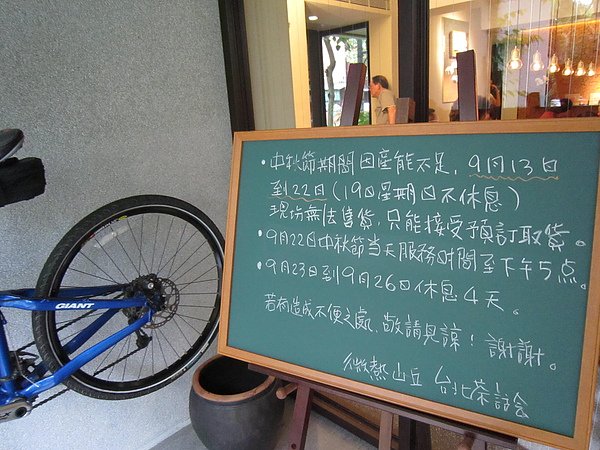 • 中秋節期間因產能不足，9月13日
到22日（19日星期日不休息）
現場無法售貨，只能接受預訂取貨。
• 9月22日中秋節當天服務時間至下午5點。
• 9月23日到9月26日休息4天。
若有造成不便之處、敬請見諒！謝謝。
微熱山丘 台北茶話會
GIANT